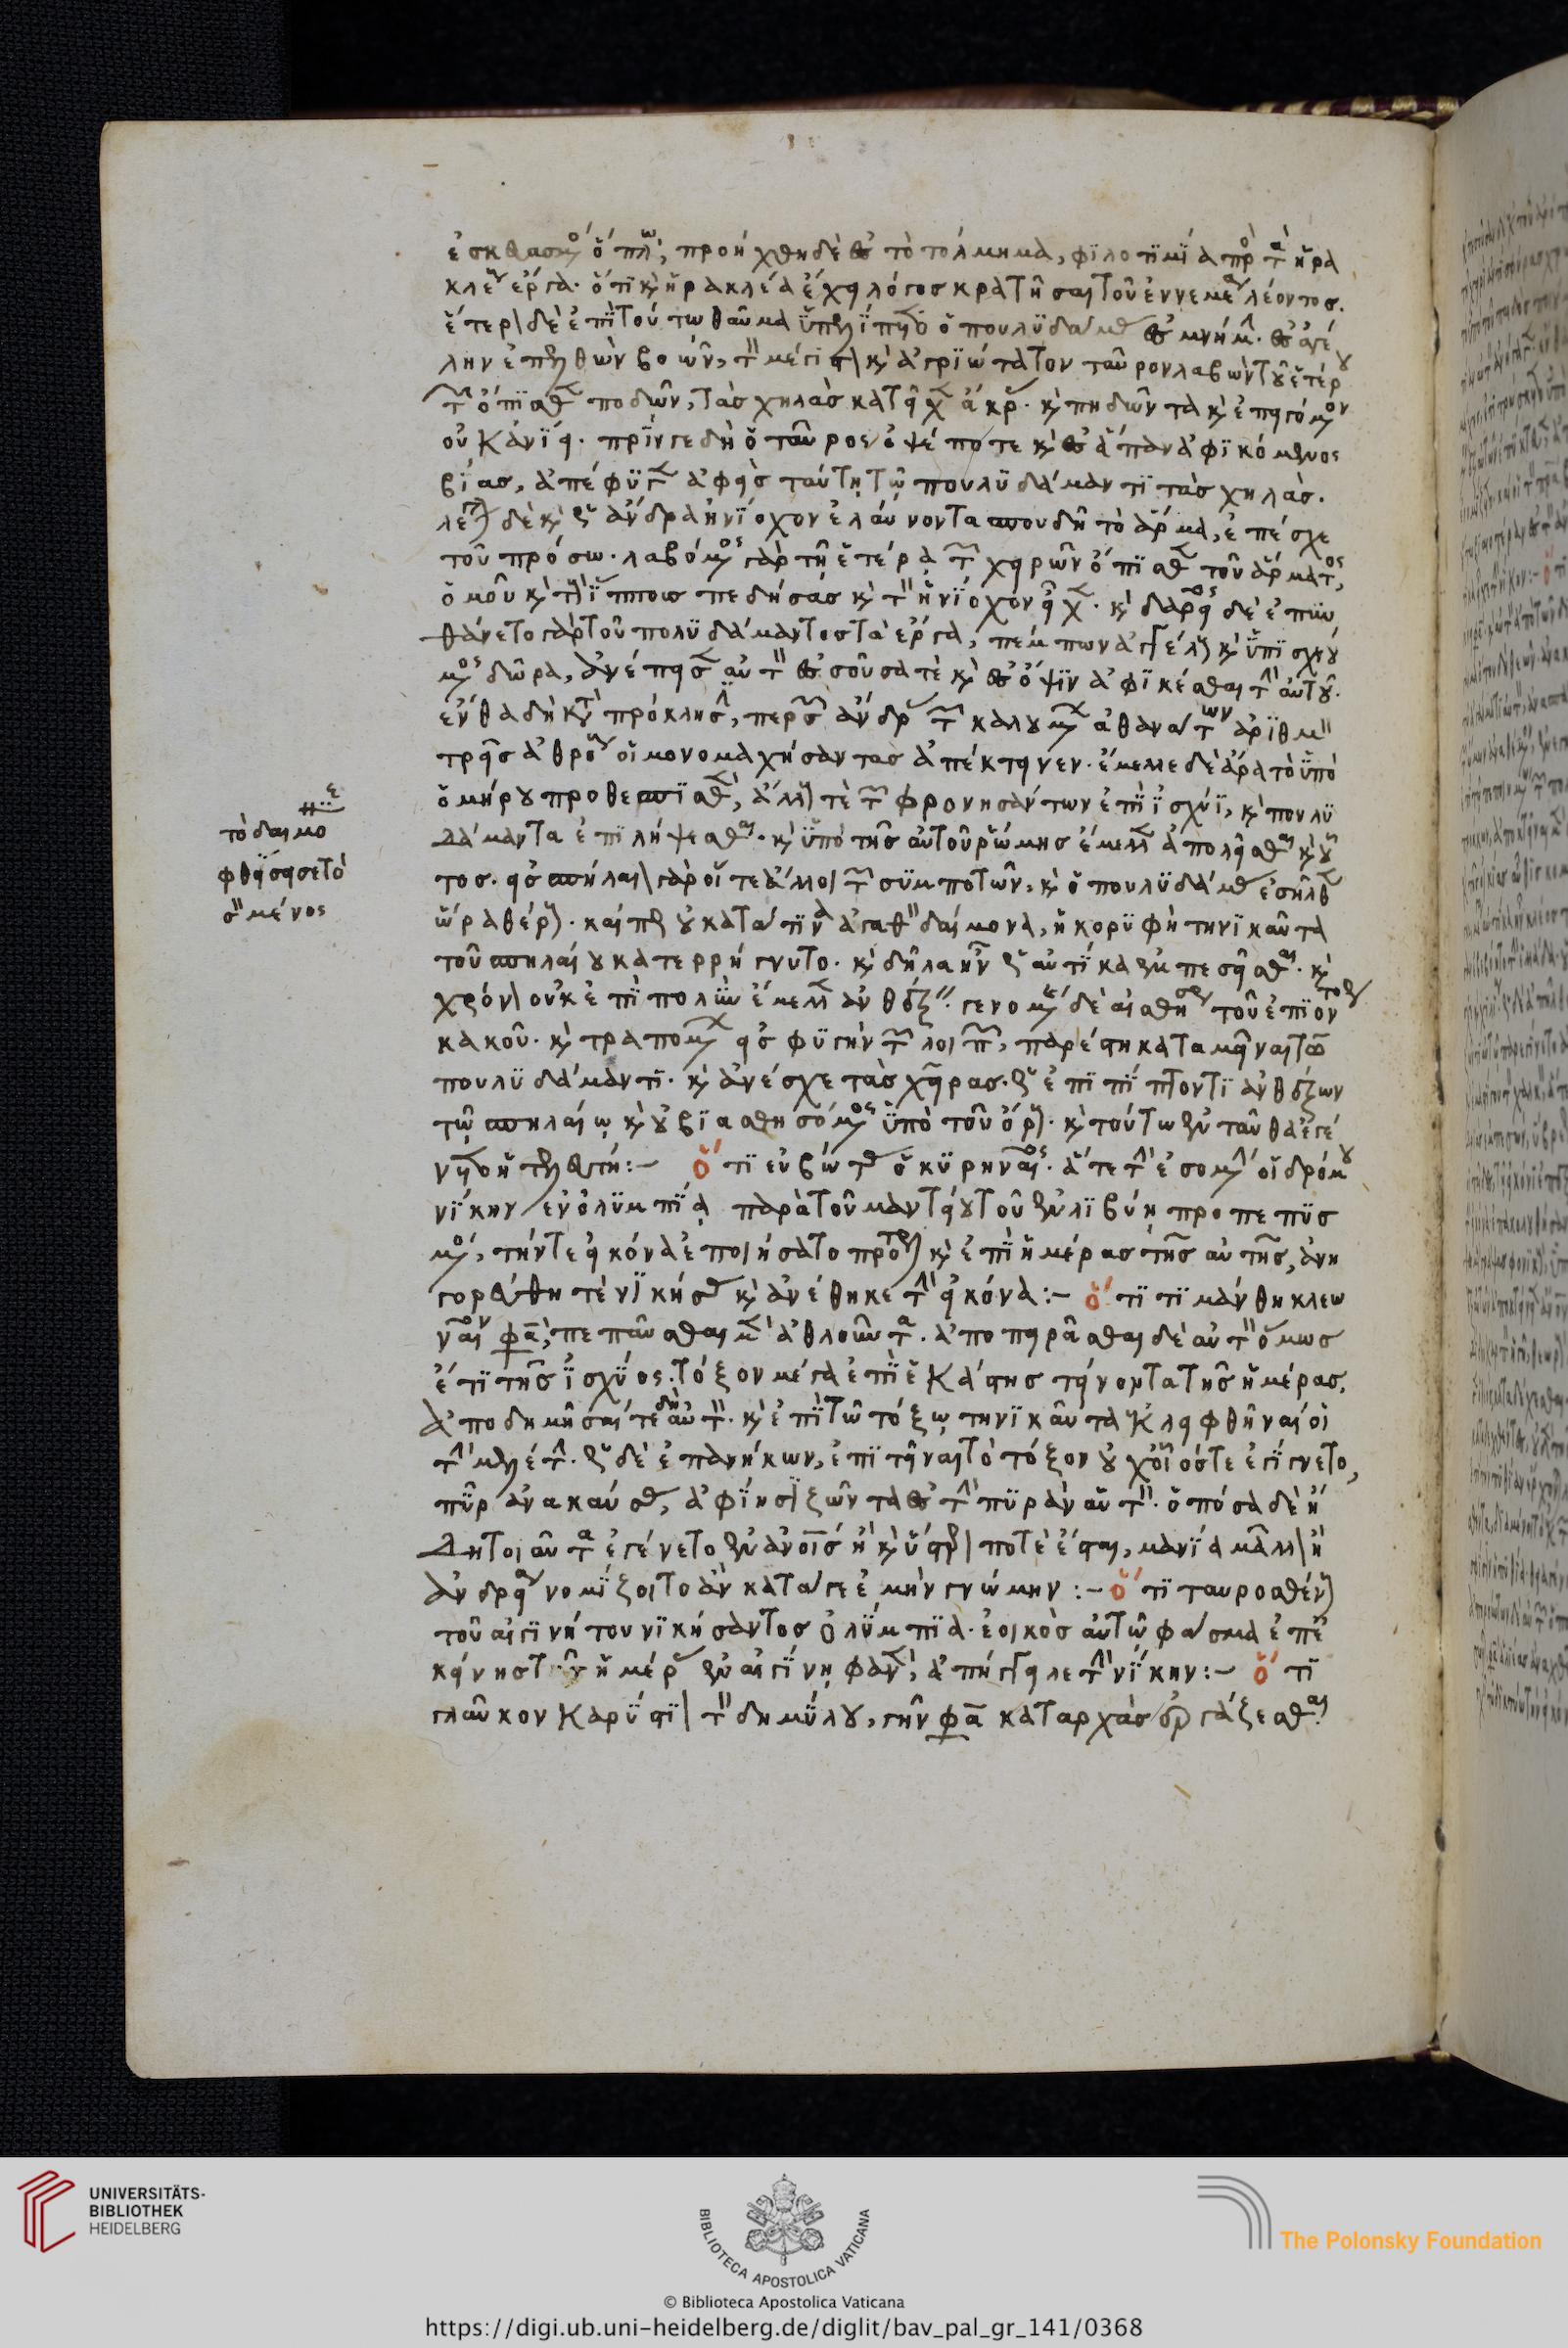 ἐσκευασμένος ὅπλω, προήχθη δὲ ἐς τὸ τόλμημα, φιλοτιμία πρὸς τὰ ἡρα
κλέους ἔργα. ὅτι καὶ ἡρακλέα ἔχει λόγος κρατῆσαι τοῦ ἐν νεμέα λέοντος.
ἕτερον δὲ ἐπὶ τούτω θαῦμα ὑπελίπετο ὁ πουλυδάμας ἐς μνήμην. ἐς ἀγέ
λην ἐπελθὼν βοῶν, τὸν μέγιστον καὶ ἀγριώτατον ταῦρον λαβὼν τοῦ ἑτέρου
τῶν ὄπισθεν ποδῶν, τὰς χηλὰς κατεῖχεν ἄκρας. καὶ πηδῶντα καὶ ἐπειγόμενον
οὐκ ἀνίει. πρίν γε δὴ ὁ ταῦρος ὀψέ ποτε καὶ ἐς ἅπαν ἀφικόμενος
βίας, ἀπέφυγεν ἀφεὶς ταύτη τῷ πουλυδάμαντι τὰς χηλάς.
λέγεται δὲ καὶ ὡς ἄνδρα ἡνίοχον ἐλαύνοντα σπουδῆ τὸ ἅρμα, ἐπέσχε
τοῦ πρόσω. λαβόμενος γὰρ τῆ ἑτέρᾳ τῶν χειρῶν ὄπισθεν τοῦ ἅρματος,
ὁμοῦ καὶ τοὺς ἵππους πεδήσας καὶ τὸν ἡνίοχον εἶχεν. καὶ δαρεῖος δὲ ἐπυν
θάνετο γὰρ τοῦ πολυδάμαντος τὰ ἔργα, πέμπων ἀγγέλους καὶ ὑπισχνού
μενος δῶρα, ἀνέπεισεν αὐτὸν ἐς σοῦσά τε καὶ ἐς ὄψιν ἀφικέσθαι τὴν αὐτοῦ.
ἔνθα δὴ κατὰ πρόκλησιν, περσῶν ἄνδρας τῶν καλουμένων ἀθανάτων ἀριθμὸν
τρεῖς ἀθρόους οἱ μονομαχήσαντας ἀπέκτεινεν. ἔμελλε δὲ ἄρα τὸ ὑπὸ
ὁμήρου προθεσπισθέν, ἄλλους τὲ τῶν φρονησάντων ἐπὶ ἰσχύϊ, καὶ πουλυ
δάμαντα ἐπιλήψεσθαι. καὶ ὑπὸ τῆς αὐτοῦ ῥώμης ἔμελλεν ἀπολεῖσθαι καὶ οὗ
τος. εἰς σπήλαιον γὰρ οἵ τε ἄλλοι τῶν συμποτῶν, καὶ ὁ πουλυδάμας ἐσῆλθεν
ὥρα θέρους. καί πως οὐ κατά τινα ἀγαθὸν δαίμονα, ἡ κορυφὴ τηνικαῦτα
τοῦ σπηλαίου κατερρήγνυτο. καὶ δῆλα ἦν ὡς αὐτίκα ἐμπεσεῖσθαι. καὶ
χρόνον οὐκ ἐπὶ πολὺν ἔμελλεν ἀνθέξειν. γενομένης δὲ αἰσθήσεως τοῦ ἐπιόντος
κακοῦ. καὶ τραπομένων εἰς φυγὴν τῶν λοιπῶν, παρέστη καταμεῖναι τῶ
πουλυδάμαντι. καὶ ἀνέσχε τὰς χεῖρας. ὡς ἐπιπίπτοντι ἀνθέξων
τῷ σπηλαίῳ καὶ οὐ βιασθησόμενος ὑπὸ τοῦ ὄρους. καὶ τούτω ἐνταῦθα ἐγέ
νετο ἡ τελευτή:– ὅτι εὐβώτας ὁ κυρηναῖος. ἅτε τὴν ἐσομένην οἱ δρόμου
νίκην ἐν ὀλυμπίᾳ παρὰ τοῦ μαντείου τοῦ ἐν λιβύη προπεπυσ
μένος, τήν τε εἰκόνα ἐποιήσατο πρότερον καὶ ἐπὶ ἡμέρας τῆς αὐτῆς, ἀνη
γορεύθη τὲ νικήσας καὶ ἀνέθηκε τὴν εἰκόνα:– ὅτι τιμάνθη κλεω
ναῖον φασὶ, πεπαῦσθαι μὲν ἀθλοῦντα. ἀποπειρᾶσθαι δὲ αὐτὸν ὅμως
ἔτι τῆς ἰσχύος. τόξον μέγα ἐπὶ ἑκάστης τείνοντα τῆς ἡμέρας,
ἀποδημῆσαί τε δὴ αὐτὸν. καὶ ἐπὶ τῶ τόξῳ τηνικαῦτα ἐκλειφθῆναί οἱ
τὴν μελέτην. ὡς δὲ ἐπανήκων, ἐπιτεῖναι τὸ τόξον οὐχ οἷός τε ἐγίγνετο,
πῦρ ἀνακαύσας, ἀφίησι ζῶντα ἐς τὴν πυρὰν αὑτὸν. ὁπόσα δὲ ἤ
δη τοιαῦτα ἐγένετο ἐν ἀνθρώποις ἢ καὶ ὕστερόν ποτε ἔσται, μανία μᾶλλον ἢ
ἀνδρεία νομίζοιτο ἂν κατά γε ἐμὴν γνώμην :– ὅτι ταυροσθένους
τοῦ αἰγινήτου νικήσαντος ὀλύμπια. ἐοικὸς αὐτῶ φάσμα ἐπ' ἐ
κείνης τῆς ἡμέρας ἐν αἰγίνη φανὲν, ἀπήγγειλε τὴν νίκην:– ὅτι
γλαῦκον καρύστιον τὸν δημύλου, γῆν φασὶ καταρχὰς ἐργάζεσθαι.
τὸ δαιμο